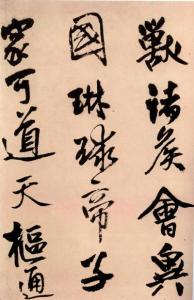 獸諸侯會異
國琳球帝子
家可道天樞通